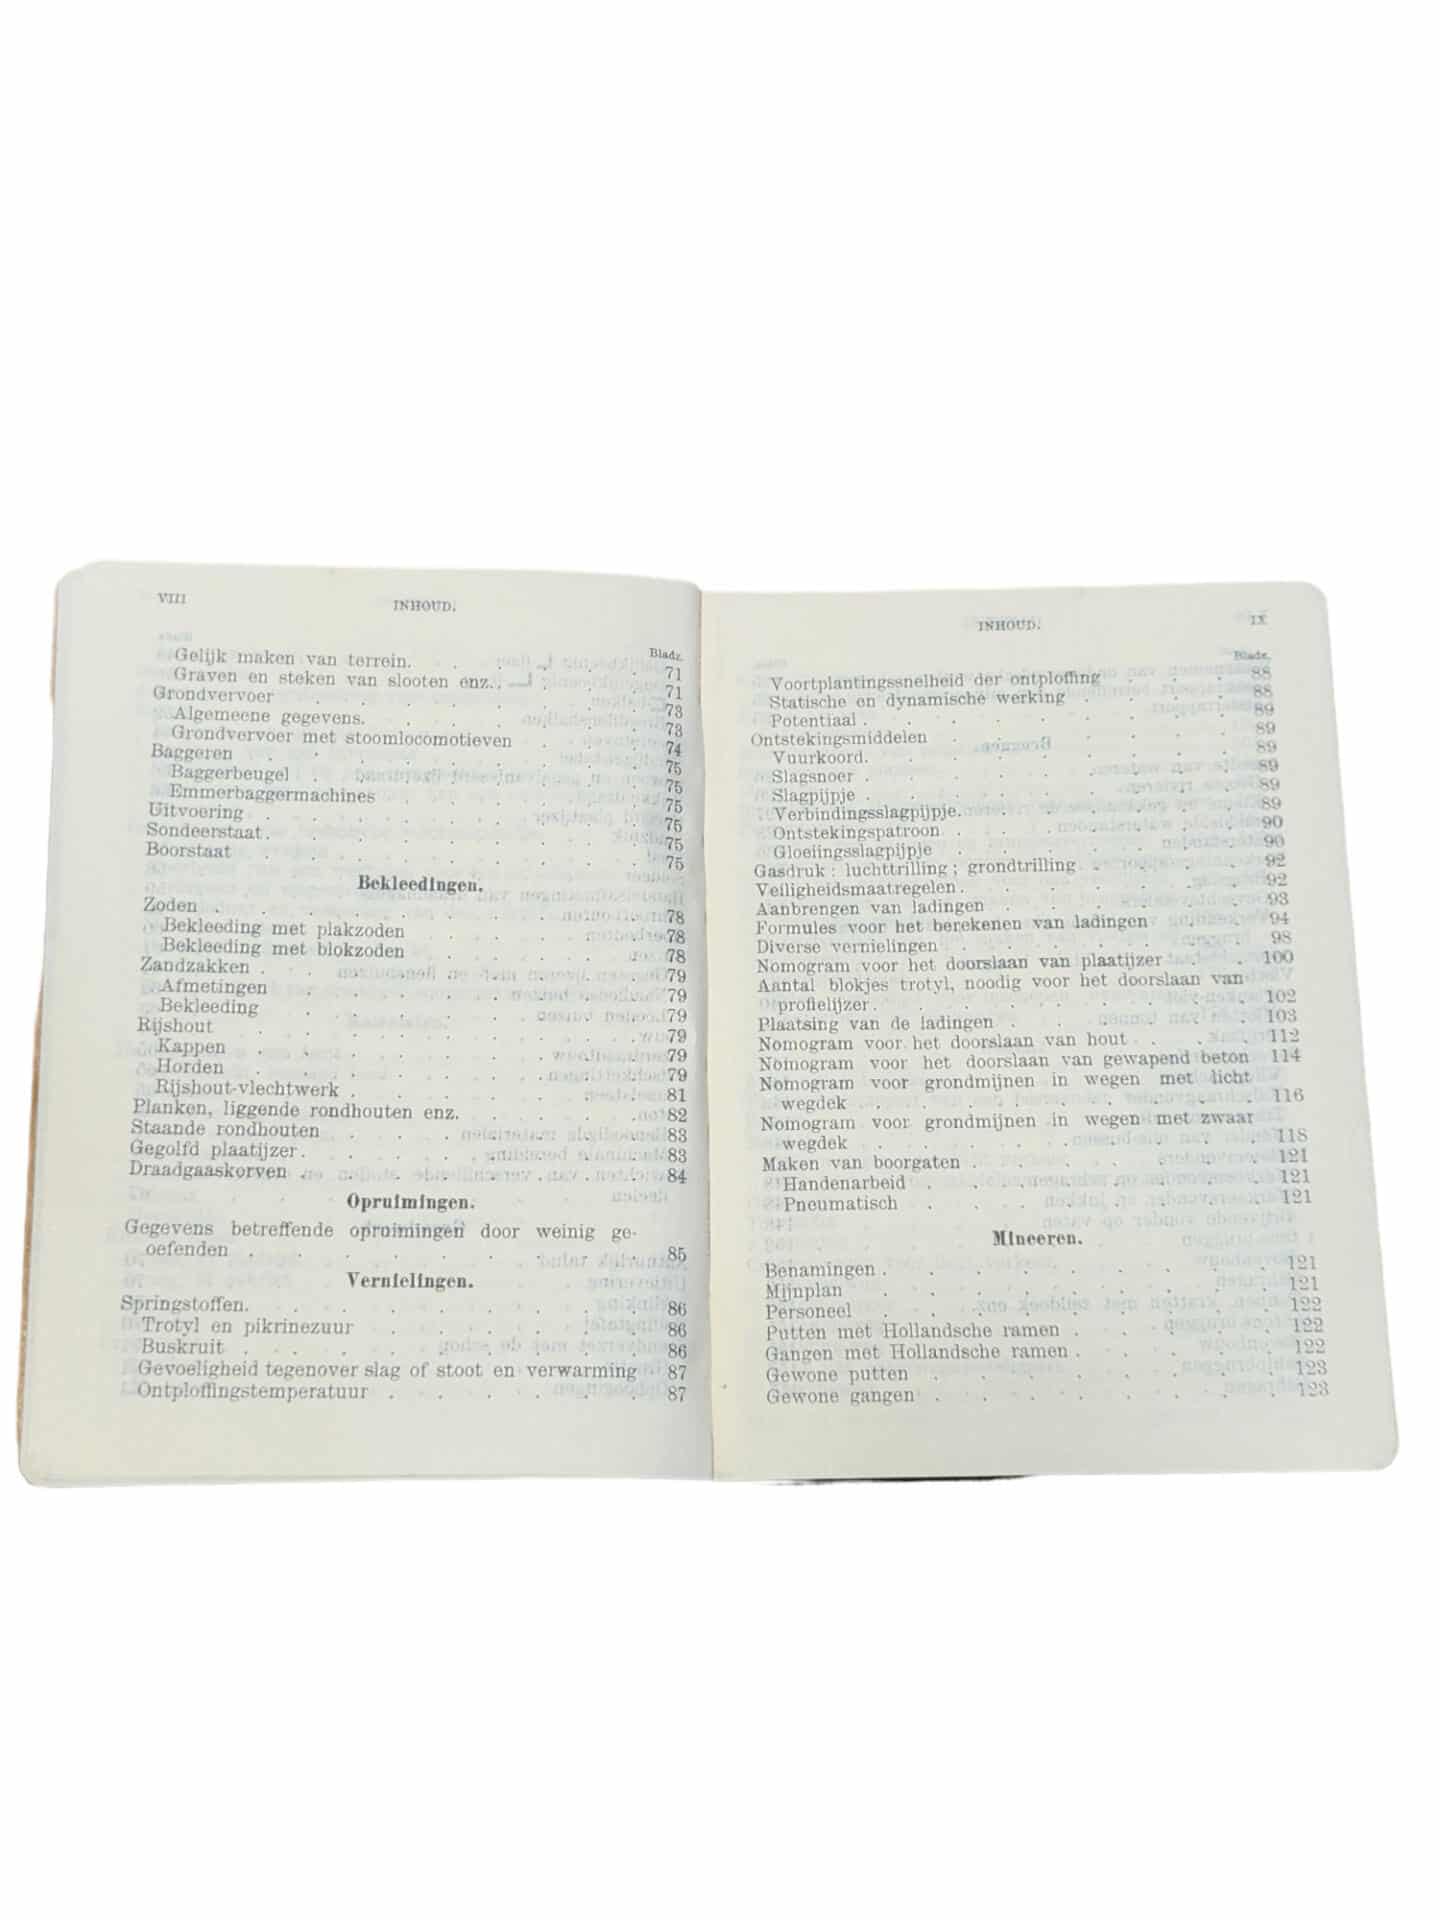 VIII
INHOUD.
Bladz.
Gelijk maken van terrein. . . . . . . 71
Graven en steken van slooten enz. . . . . 71
Grondvervoer . . . . . . . . 73
Algemeene gegevens. . . . . . . . 73
Grondvervoer met stoomlocomotieven . . . 74
Baggeren . . . . . . . . . 75
Baggerbeugel . . . . . . . . 75
Emmerbaggermachines . . . . . . 75
Uitvoering . . . . . . . . . 75
Sondeerstaat. . . . . . . . . 75
Boorstaat . . . . . . . . . 75
Bekleedingen.
Zoden . . . . . . . . . . 78
Bekleeding met plakzoden . . . . . 78
Bekleeding met blokzoden . . . . . 78
Zandzakken . . . . . . . . . 79
Afmetingen . . . . . . . . 79
Bekleeding . . . . . . . . 79
Rijshout . . . . . . . . . 79
Kappen . . . . . . . . . 79
Horden . . . . . . . . . 79
Rijshout-vlechtwerk . . . . . . . 81
Planken, liggende rondhouten enz. . . . . 82
Staande rondhouten . . . . . . . 83
Gegolfd plaatijzer. . . . . . . . 83
Draadgaaskorven . . . . . . . . 84
Opruimingen.
Gegevens betreffende opruimingen door weinig ge-
oefenden . . . . . . . . . 85
Vernielingen.
Springstoffen. . . . . . . . . 86
Trotyl en pikrinezuur . . . . . . 86
Buskruit . . . . . . . . . 86
Gevoeligheid tegenover slag of stoot en verwarming 87
Ontploffingstemperatuur . . . . . . 87
INHOUD.
IX
Bladz.
Voortplantingssnelheid der ontploffing . . . 88
Statische en dynamische werking . . . . 88
Potentiaal . . . . . . . . . 89
Ontstekingsmiddelen . . . . . . . 89
Vuurkoord. . . . . . . . . 89
Slagsnoer . . . . . . . . . 89
Slagpijpje . . . . . . . . . 89
Verbindingsslagpijpje. . . . . . . 89
Ontstekingspatroon . . . . . . . 90
Gloeiingsslagpijpje . . . . . . . 90
Gasdruk: luchttrilling; grondtrilling . . . . 92
Veiligheidsmaatregelen . . . . . . . 92
Aanbrengen van ladingen . . . . . . 93
Formules voor het berekenen van ladingen . . 94
Diverse vernielingen . . . . . . . 98
Nomogram voor het doorslaan van plaatijzer . . 100
Aantal blokjes trotyl, noodig voor het doorslaan van
profielijzer . . . . . . . . . 102
Plaatsing van de ladingen . . . . . . 103
Nomogram voor het doorslaan van hout . . . 112
Nomogram voor het doorslaan van gewapend beton 114
Nomogram voor grondmijnen in wegen met licht
wegdek . . . . . . . . . 116
Nomogram voor grondmijnen in wegen met zwaar
wegdek . . . . . . . . . 118
Maken van boorgaten . . . . . . . 121
Handenarbeid . . . . . . . . 121
Pneumatisch . . . . . . . . 121
Mineeren.
Benamingen . . . . . . . . . 121
Mijnplan . . . . . . . . . 121
Personeel . . . . . . . . . 122
Putten met Hollandsche ramen . . . . . 122
Gangen met Hollandsche ramen . . . . . 122
Gewone putten . . . . . . . . 123
Gewone gangen . . . . . . . . 123